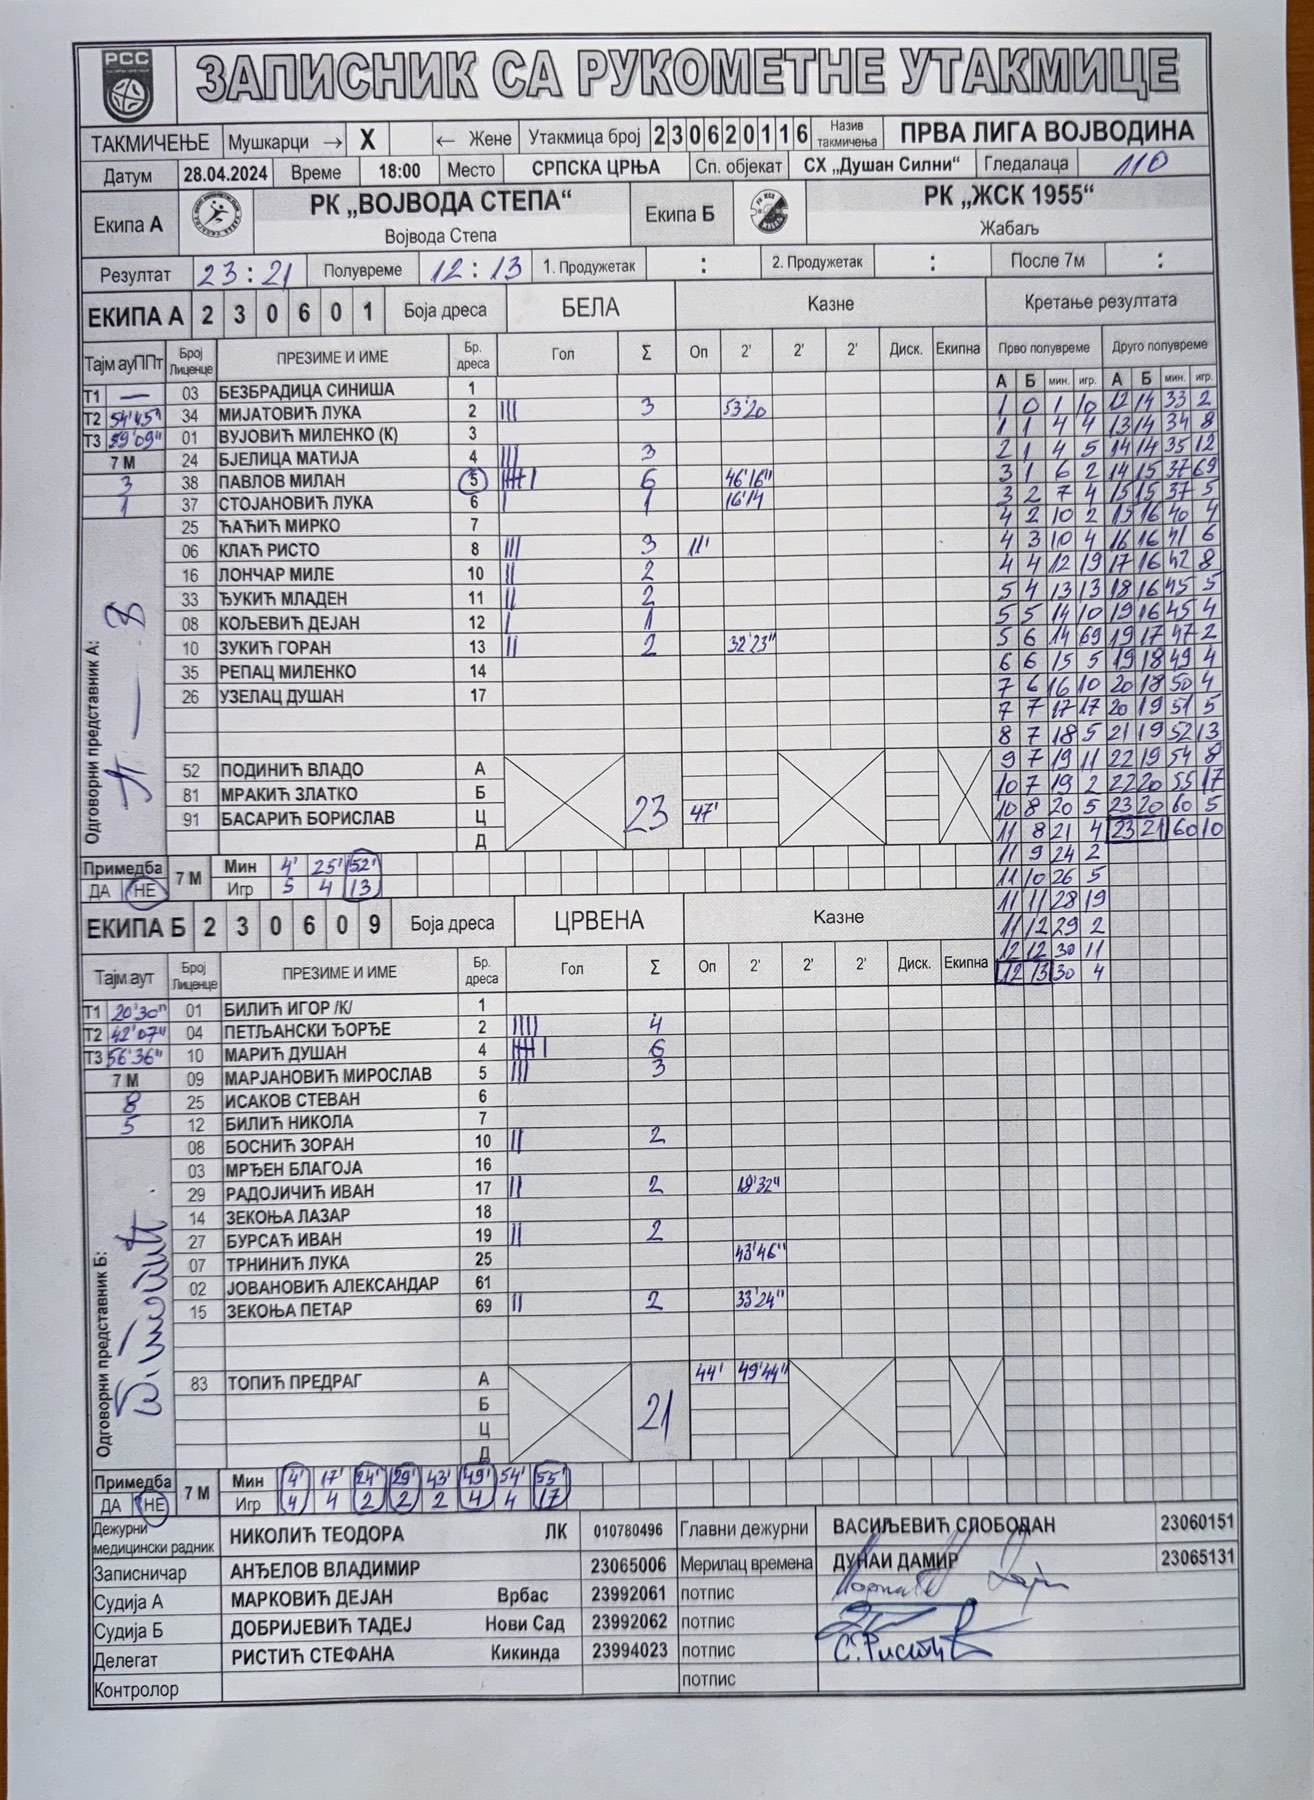 РСС
ЗАПИСНИК СА РУКОМЕТНЕ УТАКМИЦЕ
ТАКМИЧЕЊЕ Мушкарци → X ← Жене Утакмица број 23062 0116 Назив такмичења ПРВА ЛИГА ВОЈВОДИНА
Датум 28.04.2024 Време 18:00 Место СРПСКА ЦРЊА Сп. објекат СХ „Душан Силни“ Гледалаца 110
Екипа А РК „ВОЈВОДА СТЕПА“ Војвода Степа Екипа Б РК „ЖСК 1955“ Жабаљ
Резултат 23:21 Полувреме 12:13 1. Продужетак : 2. Продужетак : После 7м :
ЕКИПА А 2 3 0 6 0 1 Боја дреса БЕЛА Казне Кретање резултата
Тајм ауППт Број Лиценце ПРЕЗИМЕ И ИМЕ Бр. дреса Гол Σ Оп 2' 2' 2' Диск. Екипна Прво полувреме Друго полувреме
А Б мин. игр. А Б мин. игр.
Т1 — 03 БЕЗБРАДИЦА СИНИША 1
1 0 1 10 12 14 33 2
Т2 54'45" 34 МИЈАТОВИЋ ЛУКА 2 III 3 53'20
1 1 4 4 13 14 34 8
Т3 59'09" 01 ВУЈОВИЋ МИЛЕНКО (К) 3
2 1 4 5 14 14 35 12
7 М 24 БЈЕЛИЦА МАТИЈА 4 III 3
3 1 6 2 14 15 37 69
3 38 ПАВЛОВ МИЛАН 5 IIII I 6 46'16"
3 2 7 4 15 15 37 5
1 37 СТОЈАНОВИЋ ЛУКА 6 I 1 16'14
4 2 10 2 15 16 40 4
25 ЋАЋИЋ МИРКО 7
4 3 10 4 16 16 41 6
06 КЛАЋ РИСТО 8 III 3 11'
4 4 12 19 17 16 42 8
16 ЛОНЧАР МИЛЕ 10 II 2
5 4 13 13 18 16 45 5
33 ЂУКИЋ МЛАДЕН 11 II 2
5 5 14 10 19 16 45 4
08 КОЉЕВИЋ ДЕЈАН 12 I 1
5 6 14 69 19 17 47 2
10 ЗУКИЋ ГОРАН 13 II 2 32'23"
6 6 15 5 19 18 49 4
35 РЕПАЦ МИЛЕНКО 14
7 6 16 10 20 18 50 4
26 УЗЕЛАЦ ДУШАН 17
7 7 17 17 20 19 51 5
8 7 18 5 21 19 52 13
9 7 19 11 22 19 54 8
52 ПОДИНИЋ ВЛАДО А
10 7 19 2 22 20 55 17
81 МРАКИЋ ЗЛАТКО Б 23
10 8 20 5 23 20 60 5
91 БАСАРИЋ БОРИСЛАВ Ц 47'
11 8 21 4 23 21 60 10
Д
Одговорни представник А:
11 9 24 2
Примедба 7 М Мин 4' 25' 52'
11 10 26 5
ДА НЕ Игр 5 4 13
11 11 28 19
ЕКИПА Б 2 3 0 6 0 9 Боја дреса ЦРВЕНА Казне
11 12 29 2
12 12 30 11
Тајм аут Број Лиценце ПРЕЗИМЕ И ИМЕ Бр. дреса Гол Σ Оп 2' 2' 2' Диск. Екипна
12 13 30 4
Т1 20'30" 01 БИЛИЋ ИГОР /К/ 1
Т2 42'07" 04 ПЕТЉАНСКИ ЂОРЂЕ 2 IIII 4
Т3 56'36" 10 МАРИЋ ДУШАН 4 IIII I 6
7 М 09 МАРЈАНОВИЋ МИРОСЛАВ 5 III 3
8 25 ИСАКОВ СТЕВАН 6
5 12 БИЛИЋ НИКОЛА 7
08 БОСНИЋ ЗОРАН 10 II 2
03 МРЂЕН БЛАГОЈА 16
29 РАДОЈИЧИЋ ИВАН 17 II 2 19'32"
14 ЗЕКОЊА ЛАЗАР 18
27 БУРСАЋ ИВАН 19 II 2
07 ТРНИНИЋ ЛУКА 25 43'46"
02 ЈОВАНОВИЋ АЛЕКСАНДАР 61
15 ЗЕКОЊА ПЕТАР 69 II 2 33'24"
83 ТОПИЋ ПРЕДРАГ А 44' 49'44"
Б 21
Ц
Д
Одговорни представник Б:
Примедба 7 М Мин 4' 17' 24' 29' 43' 49' 54' 55'
ДА НЕ Игр 4 4 2 2 2 4 4 17
Дежурни медицински радник НИКОЛИЋ ТЕОДОРА ЛК 010780496 Главни дежурни ВАСИЉЕВИЋ СЛОБОДАН 23060151
Записничар АНЂЕЛОВ ВЛАДИМИР 23065006 Мерилац времена ДУНАИ ДАМИР 23065131
Судија А МАРКОВИЋ ДЕЈАН Врбас 23992061 потпис
Судија Б ДОБРИЈЕВИЋ ТАДЕЈ Нови Сад 23992062 потпис
Делегат РИСТИЋ СТЕФАНА Кикинда 23994023 потпис С. Ристић
Контролор потпис